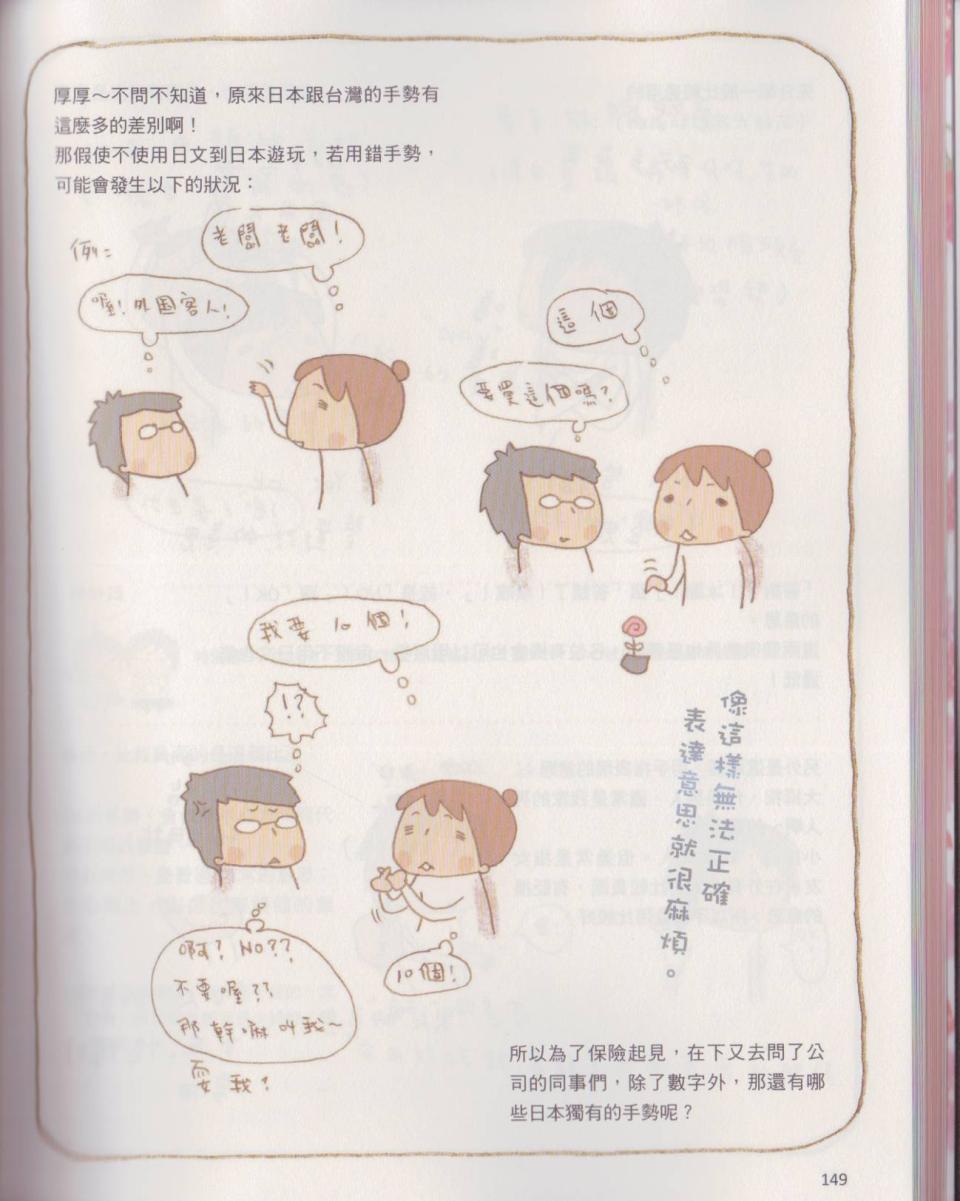 厚厚～不問不知道，原來日本跟台灣的手勢有
這麼多的差別啊！
那假使不使用日文到日本遊玩，若用錯手勢，
可能會發生以下的狀況：
例：
老闆 老闆！
喔！外國客人！
這個
要買這個嗎？
我要10個！
!?
10個！
啊？NO??
不要喔??
那幹嘛叫我～
耍我？
像這樣無法正確
表達意思就很麻煩。
所以為了保險起見，在下又去問了公
司的同事們，除了數字外，那還有哪
些日本獨有的手勢呢？
149